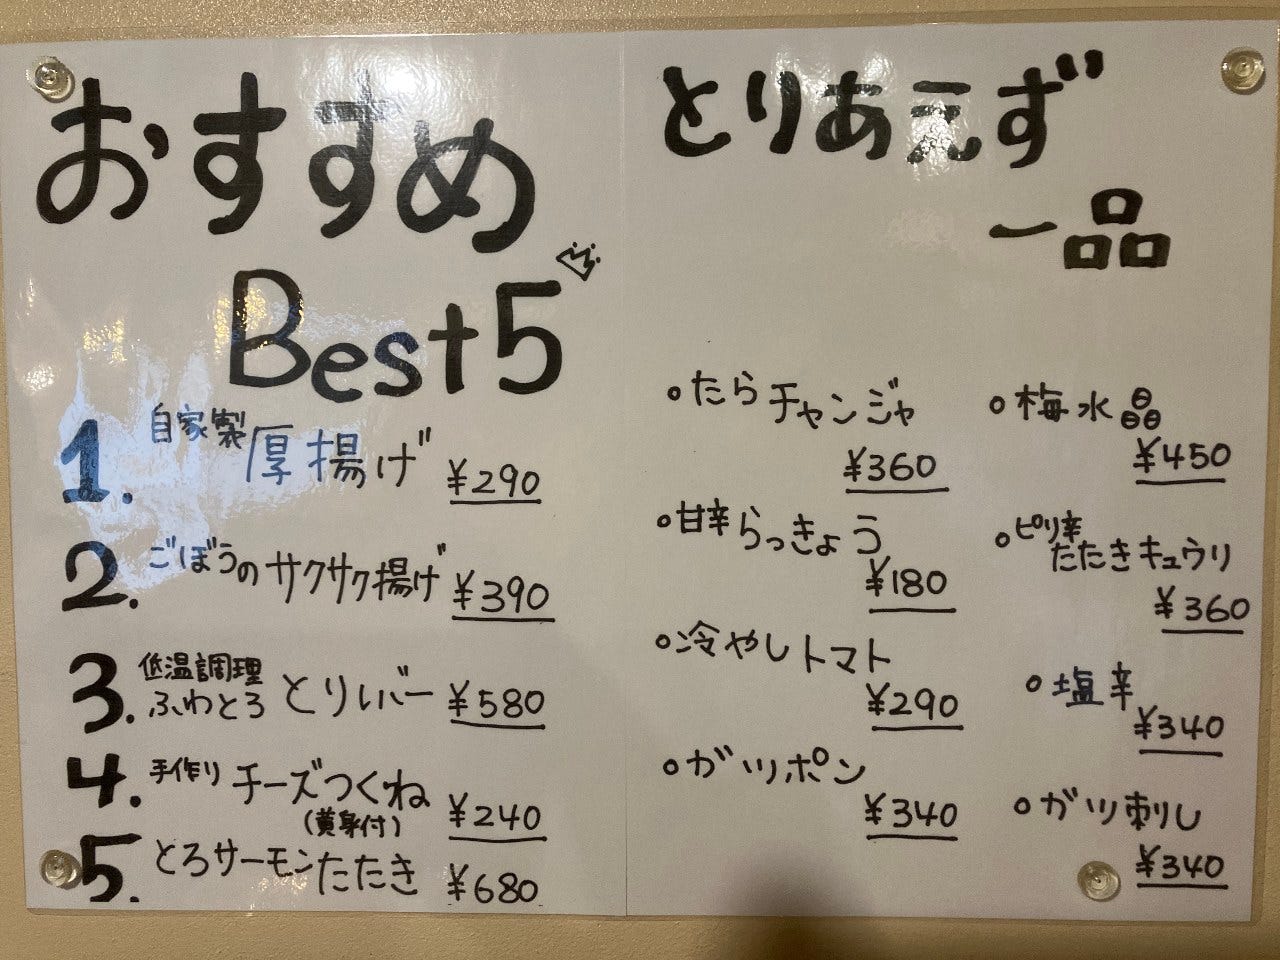 おすすめ
Best5
1. 自家製 厚揚げ ¥290
2. ごぼうのサクサク揚げ ¥390
3. 低温調理
ふわとろ とりレバー ¥580
4. 手作り チーズつくね
(黄身付) ¥240
5. とろサーモンたたき ¥680
とりあえず
一品
たらチャンジャ
¥360
甘辛らっきょう
¥180
冷やしトマト
¥290
ガツポン
¥340
梅水晶
¥450
ピリ辛
たたきキュウリ
¥360
塩辛
¥340
ガツ刺し
¥340